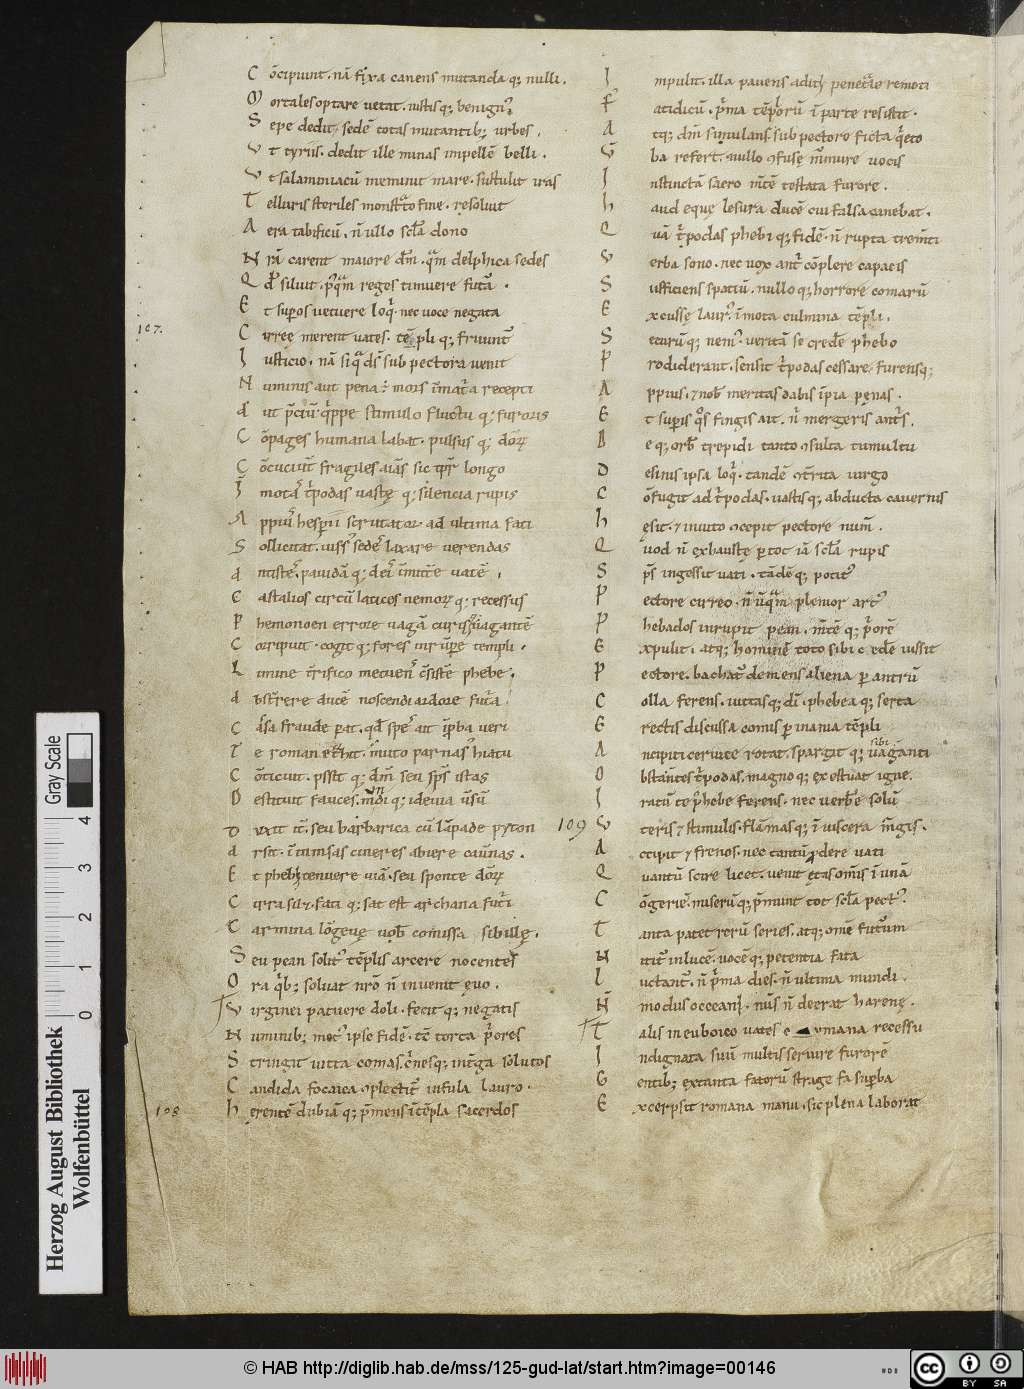 C ōcipiunt. nā fixa canens mutanda q; nulli.
M ortales optare uetat. iustis q; benignꝰ
S epe dedit, sedē totis mutantib; urbes.
V t tyriis. dedit ille minas impellē belli.
V t salaminiacū meminit mare. sustulit iras
T elluris steriles monstrato fine. resoluit
A era tabificū. ñ ullo scła dono
N rā carent maiore dm̄. qm̄ delphica sedes
Q đ siluit. pqm̄ reges timuere futā.
E t supos uetuere loq̇. nec uoce negata
C irree merent uates. tēpli q; fruunt̄
I usticio. nā siq̇ ds̄ sub pectora uenit
N uminis aut pena. mors īmatā recepti
A ut p̄ciū. q̇ppe stimulo fluctu q; furoris
C ōpages humana labat. pulsus q; doꝝ
C ōcuciūt fragiles aīas sic tp̄r longo
I motā tpodas uastę q; silencia rupis
A ppiuꝰ hesperii scrutator ad ultima fati
S ollicitat. iussꝰ sedeſ laxare uerendas
A ntisteſ. pauidā q; deiſ īmittē uatē.
C astalios circū laticos nemoꝝ q; recessus
P hemonoen errore uagā curisq; uagantē
C orripuit. cogit q; fores inrūpe templi.
L imine terrifico metuenſ c̄sistē phebe.
A bstrere ducē noscendi ardore futā
C assa fraude pat. qd̄ speſ ait īproba ueri
T e romane trahit. muto parnasꝰ hiatu
C ōticuit. p̄ssit q; dm̄ seu sp̄s istas
D estituit fauces. mundi q; ideuia uersū
D uxit iť. seu barbarica cū lāpade pyton
A rsit. ī inmsas cineres abiere cauīnas.
E t phebi tenuere uiā. seu sponte doꝝ
C irra silet. fati q; sat est archana futī
C armina lōgeuę uob̄ comissa sibillę.
S eu pean solitꝰ tēplis arcere nocentes
O ra q̇b; soluat nrō ñ inuenit ęuo.
V irginei patuere doli. fecit q; negatis
N uminib; motꝰ ipse fidē. tē torta p̄ores
S tringit uitta comas. c̄nesq; in tęga solutos
C andida focaica oplectit̄ infula lauro.
H erentē dubiā q; p̄mens ī tēpla sacerdos
107.
108
I mpulit. illa pauens aditi penetrale remoti
F atidicū. p̄ma tēplorū ī parte resistit.
A tq; dm̄ simulans. sub pectore ficta q̇eto
V̄ ba refert. nullo ɔfusę m̄mure uocis
I nstinctā sacro m̄tē testata furore.
H aud eque lesura ducē cui falsa canebat.
Q uā tpodas phebi q; fidē. ñ rupta trem̄ti
V erba sono. nec uox antri cōplere capacis
S ufficiens spatiū. nullo q; horrore comarū
E xcusse laurꝰ. īmota culmina tēpli.
S ecurū q; nemꝰ. ueritā se credē phebo
P rodiderant. sensit tpodas cessare. furensq;
A ppius. & nob̄ meritas dabis īpia pęnas.
E t supis q̇s fingis ait. ni mergeris antris.
D e q; orb̄ trepidi tanto ɔsulta tumultu
D esinis ipsa loq̇. tandē ɔtrita uirgo
C ōfugit ad tpodas. uastis q; abducta cauernis
H ęsit. & inuito ɔcepit pectore num̄.
Q uod ñ exhaustę p tot iā scła rupis
S ps̄ ingessit uati. tādē q; potitꝰ
P ectore cirreo. ñ ūqm̄ plenior artꝰ
P hebados inrupit pean. m̄tē q; p̄orē
E xpulit. atq; hominē toto sibi cedē iussit
P ectore. bachat̄ demens aliena p antrū
C olla ferens. uittasq; dī. phebea q; serta
E rectis discussa comis p inania tēpli
A ncipiti ceruice rotat. spargit q; uaganti
sibi
O bstantes tpodas. magno q; exestuat igne.
I ratū te phebe ferens. nec uerbe solū
109
V teris & stimulis. flāmas q; ī uiscera m̄gis.
A ccipit & frenos. nec tantū pdere uati
Q uantū scire licet. uenit ętas om̄is ī unā
C ōgerie. miserū q; p̄munt tot scła pectꝰ.
T anta patet rerū series. atq; om̄e futūm
N itit̄ in lucē. uocē q; petentia fata
L uctant̄. ñ p̄ma dies. ñ ultima mundi.
Ñ modus occeani. num̄s ñ deerat harenę.
T alis in euboico uates cumana recessu
I ndignata suū multis seruire furorē
G entib; ex tanta fatorū strage superba
E xcerpsit romana manu. sic plena laborat
Gray Scale
0 1 2 3 4
Herzog August Bibliothek
Wolfenbüttel
© HAB http://diglib.hab.de/mss/125-gud-lat/start.htm?image=00146
cc BY SA